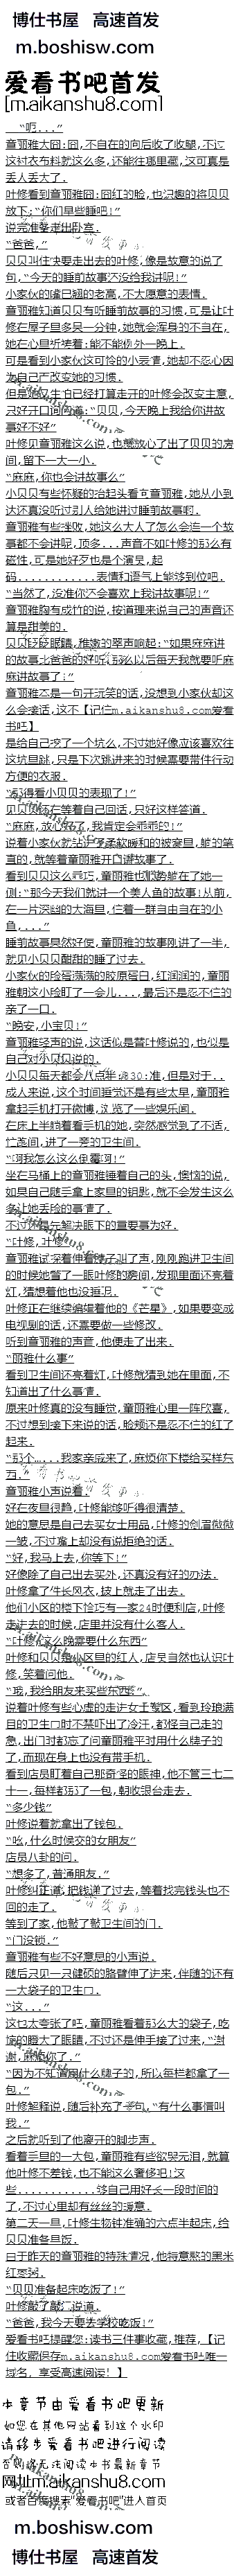 博仕书屋 高速首发
m.boshisw.com
爱看书吧首发
[m.aikanshu8.com]
“呃...”
童丽雅大囧:囧,不自在的向后收了收腿,不过
这衬衣布料就这么多,还能往哪里藏,这可真是
丢人丢大了.
叶修看到童丽雅囧:囧红的脸,也识趣的将贝贝
放下:“你们早些睡吧!”
说完准备走出卧室.
“爸爸,”
贝贝叫住快要走出去的叶修,像是故意的说了
句,“今天的睡前故事还没给我讲呢!”
小家伙的嘴巴翘的老高,不大愿意的表情.
童丽雅知道贝贝有听睡前故事的习惯,可是让叶
修在屋子里多呆一分钟,她就会浑身的不自在,
她在心里祈祷着:能不能例外一晚上.
可是看到小家伙这可怜的小表情,她却不忍心因
为自己而改变她的习惯.
但是如今自己已经打算走开的叶修会改变主意,
只好开口询问道:“贝贝,今天晚上我给你讲故
事好不好”
叶修见童丽雅这么说,也就放心了出了贝贝的房
间,留下一大一小.
“麻麻,你也会讲故事么”
小贝贝有些怀疑的抬起头看向童丽雅,她从小到
达还真没听过别人给她讲过睡前故事呢.
童丽雅有些挫败,她这么大人了怎么会连一个故
事都不会讲呢,顶多...声音不如叶修的那么有
磁性,可是她好歹也是个演员,起
码............表情和语气上能够到位吧.
“当然了,没准你还会喜欢上我讲故事呢!”
童丽雅胸有成竹的说,按道理来说自己的声音还
算是甜美的.
贝贝眨眨眼睛,稚嫩的翠声响起:“如果麻麻讲
的故事比爸爸的好听,那么以后每天我就要听麻
麻讲故事了!”
童丽雅本是一句开玩笑的话,没想到小家伙却这
么会接话,这不【记住m.aikanshu8.com爱看
书吧】
是给自己挖了一个坑么,不过她好像应该喜欢往
这坑里跳,只是下次跳进来的时候需要带件行动
方便的衣服.
“那得看小贝贝的表现了!”
贝贝好像在等着自己回话,只好这样答道.
“麻麻,放心好了,我肯定会乖乖的!”
说着小家伙就钻进了柔软暖和的被窝里,躺的笔
直的,就等着童丽雅开口讲故事了.
看到贝贝这么乖巧,童丽雅也顺势躺在了她一
侧:“那今天我们就讲一个美人鱼的故事:从前,
在一片深幽的大海里,住着一群自由自在的小
鱼,...”
睡前故事果然好使,童丽雅的故事刚讲了一半,
就见小贝贝酣甜的睡了过去.
小家伙的脸蛋满满的胶原蛋白,红润润的,童丽
雅朝这小脸盯了一会儿...,最后还是忍不住的
亲了一口.
“晚安,小宝贝!”
童丽雅轻声的说,这话似是替叶修说的,也似是
自己对小贝贝说的.
小贝贝每天都会八点半:8:30:准,但是对于..
成人来说,这个时间睡觉还是有些太早,童丽雅
拿起手机打开微博,浏览了一些娱乐闻.
在床上半躺着看手机的她,突然感觉到了不适,
忙起间,进了一旁的卫生间.
“啊我怎么这么倒霉啊!”
坐在马桶上的童丽雅锤着自己的头,懊恼的说,
如果自己随手拿上家里的钥匙,就不会发生这么
多让她丢脸的事情了.
不过还是先解决眼下的重要事为好.
“叶修,叶修”
童丽雅试探着伸着脖子叫了声,刚刚跑进卫生间
的时候她瞥了一眼叶修的房间,发现里面还亮着
灯,猜想着他也没睡呢.
叶修正在继续编辑着他的《芒星》,如果要变成
电视剧的话,还需要做一些修改.
听到童丽雅的声音,他便走了出来.
“丽雅什么事”
看到卫生间还亮着灯,叶修就猜到她在里面,不
知道出了什么事情.
原来叶修真的没有睡觉,童丽雅心里一阵欣喜,
不过想到接下来说的话,脸颊还是忍不住的红了
起来.
“那个......我家亲戚来了,麻烦你下楼给买样东
西.”
童丽雅小声说着.
好在夜里很静,叶修能够听得很清楚.
她的意思是自己去买女士用品,叶修的剑眉微微
一皱,不过嘴上却没有说拒绝的话.
“好,我马上去,你等下!”
好像除了自己出去买外,还真没有好的办法.
叶修拿了件长风衣,披上就走了出去.
他们小区的楼下恰巧有一家24时便利店,叶修
走进去的时候,店里并没有什么客人.
“叶修,这么晚需要什么东西”
叶修和贝贝是小区里的红人,店员自然也认识叶
修,笑着问他.
“哦,我给朋友买些东西”,
说着叶修有些心虚的走进女士专区,看到玲琅满
目的卫生巾时不禁吓出了冷汗,都怪自己走的
急,出门时都忘了问童丽雅平时用什么牌子的
了,而现在身上也没有带手机.
看到店员盯着自己那奇怪的眼神,他不管三七二
十一,每样都拿了一包,朝收银台走去.
“多少钱”
叶修说着就拿出了钱包.
“呦,什么时候交的女朋友”
店员八卦的问.
“想多了,普通朋友.”
叶修纠正道,把钱递了过去,等着找完钱头也不
回的走了.
等到了家,他敲了敲卫生间的门.
“门没锁.”
童丽雅有些不好意思的小声说.
随后只见一只健硕的胳臂伸了进来,伴随的还有
一大袋子的卫生巾.
“这...”
这也太夸张了吧,童丽雅看着那么大的袋子,吃
惊的瞪大了眼睛,不过还是伸手接了过来,“谢
谢,麻烦你了.”
“因为不知道用什么牌子的,所以每样都拿了一
包.”
叶修解释说,随后补充了一句,“有什么事情叫
我.”
之后就听到了他离开的脚步声.
看着手里的一大包,童丽雅有些欲哭无泪,就算
他叶修不差钱,也不能这么奢侈吧!这
些............够自己用好长一段时间的
了,不过心里却有丝丝的暖意.
第二天一早,叶修生物钟准确的六点半起床,给
贝贝准备早饭.
由于昨天的童丽雅的特殊情况,他特意熬的黑米
红枣粥.
“贝贝准备起床吃饭了!”
叶修敲了敲门说道.
“爸爸,我今天要去学校吃饭!”
爱看书吧提醒您:读书三件事收藏,推荐,【记
住收藏保存m.aikanshu8.com爱看书吧唯一
域名，享受高速阅读！】
本章节由爱看书吧更新
如您在其他网站看到这个水印
请移步爱看书吧进行阅读
否则将无法阅读本书最新章节
网址m.aikanshu8.com
或者百度搜索"爱看书吧"进入首页
m.boshisw.com
博仕书屋 高速首发